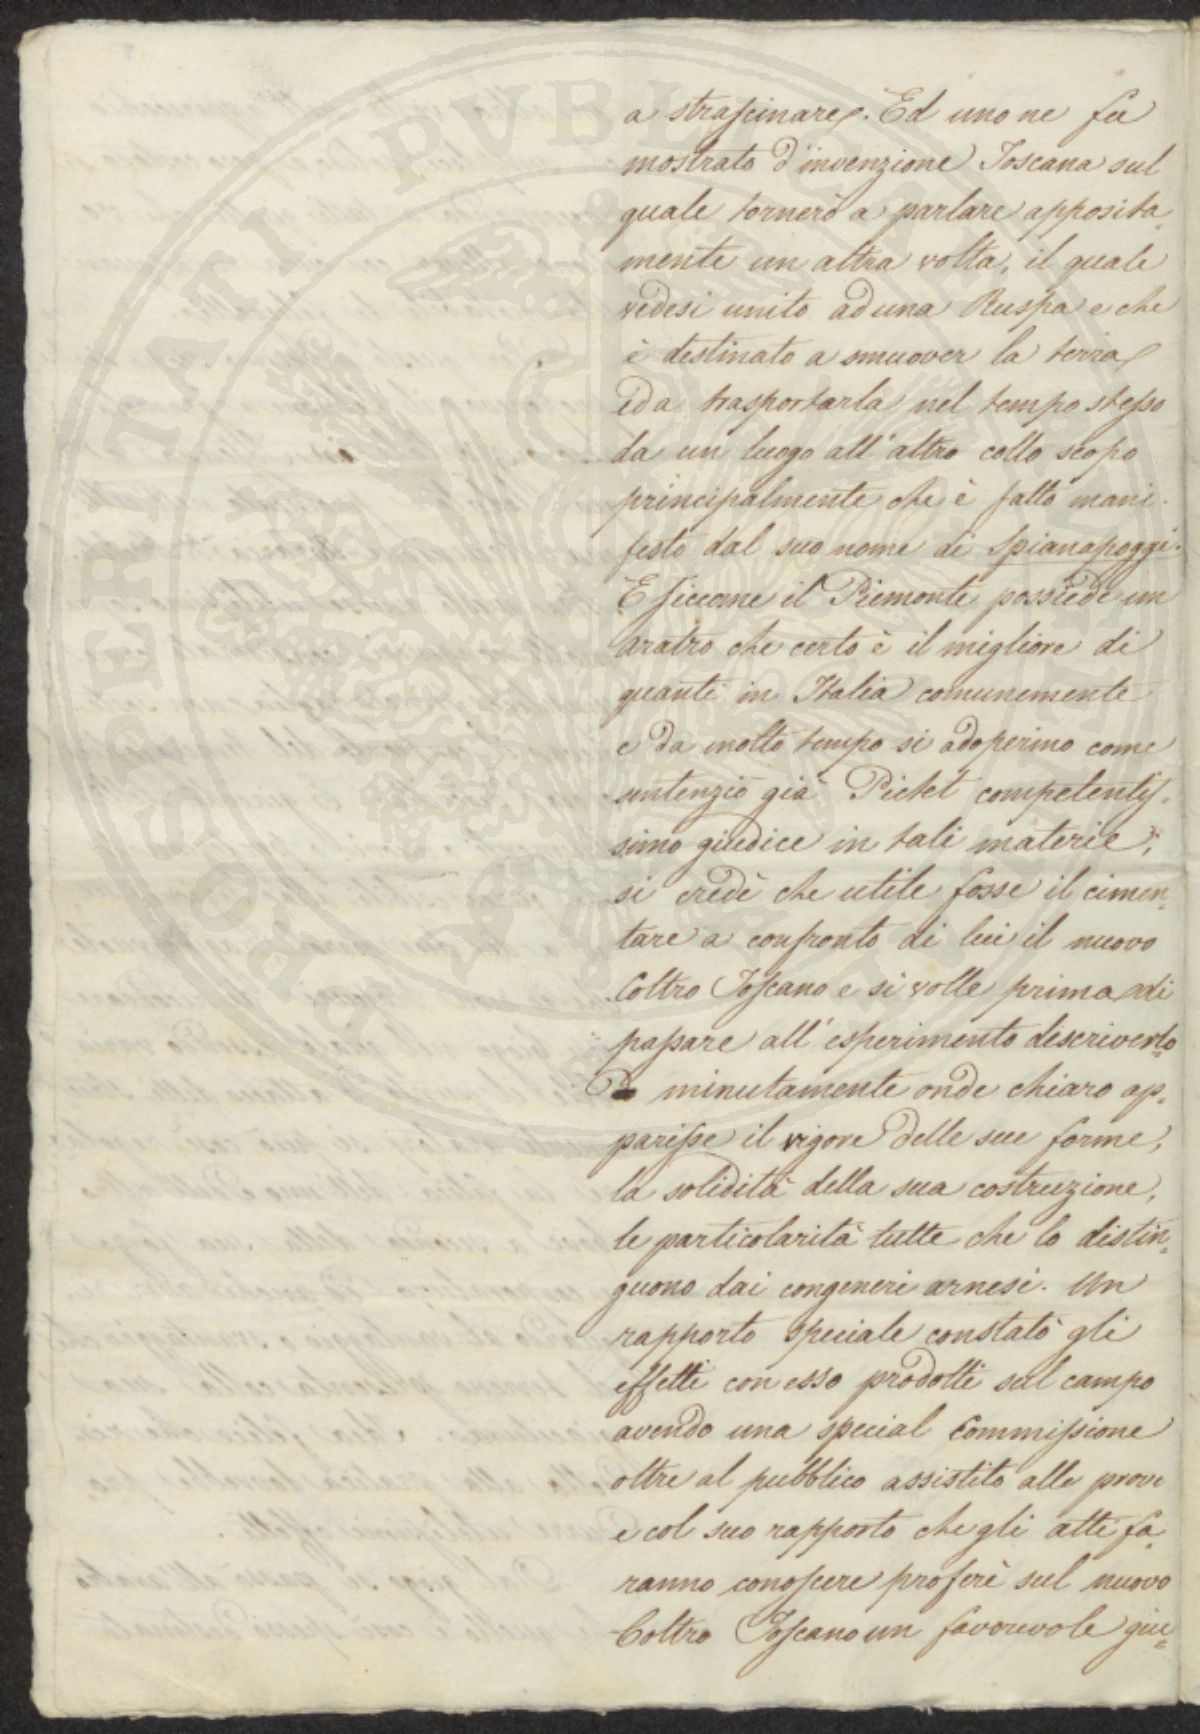 a strascinare. Ed uno ne fu
mostrato d'invenzione Toscana sul
quale tornerò a parlare apposita-
mente un altra volta, il quale
vedesi unito ad una Ruspa e che
è destinato a smuover la terra
ed a trasportarla nel tempo stesso
da un luogo all'altro collo scopo
principalmente che è fatto mani-
festo dal suo nome di Spianapoggi.
E siccome il Piemonte possiede un
aratro che certo è il migliore di
quanti in Italia comunemente
e da molto tempo si adoperino come
sentenziò già Pictet competentis-
simo giudice in tali materie;
si credè che utile fosse il cimen-
tare a confronto di lui il nuovo
Coltro Toscano e si volle prima di
passare all'esperimento descriverlo
minutamente onde chiaro ap-
parisse il vigore delle sue forme,
la solidità della sua costruzione,
le particolarità tutte che lo distin-
guono dai congeneri arnesi. Un
rapporto speciale constatò gli
effetti con esso prodotti sul campo
avendo una special Commissione
oltre al pubblico assistito alle prove
e col suo rapporto che gli atti fa-
ranno conoscere proferì sul nuovo
Coltro Toscano un favorevole giu-
PROSPERITATI PUBLICAE